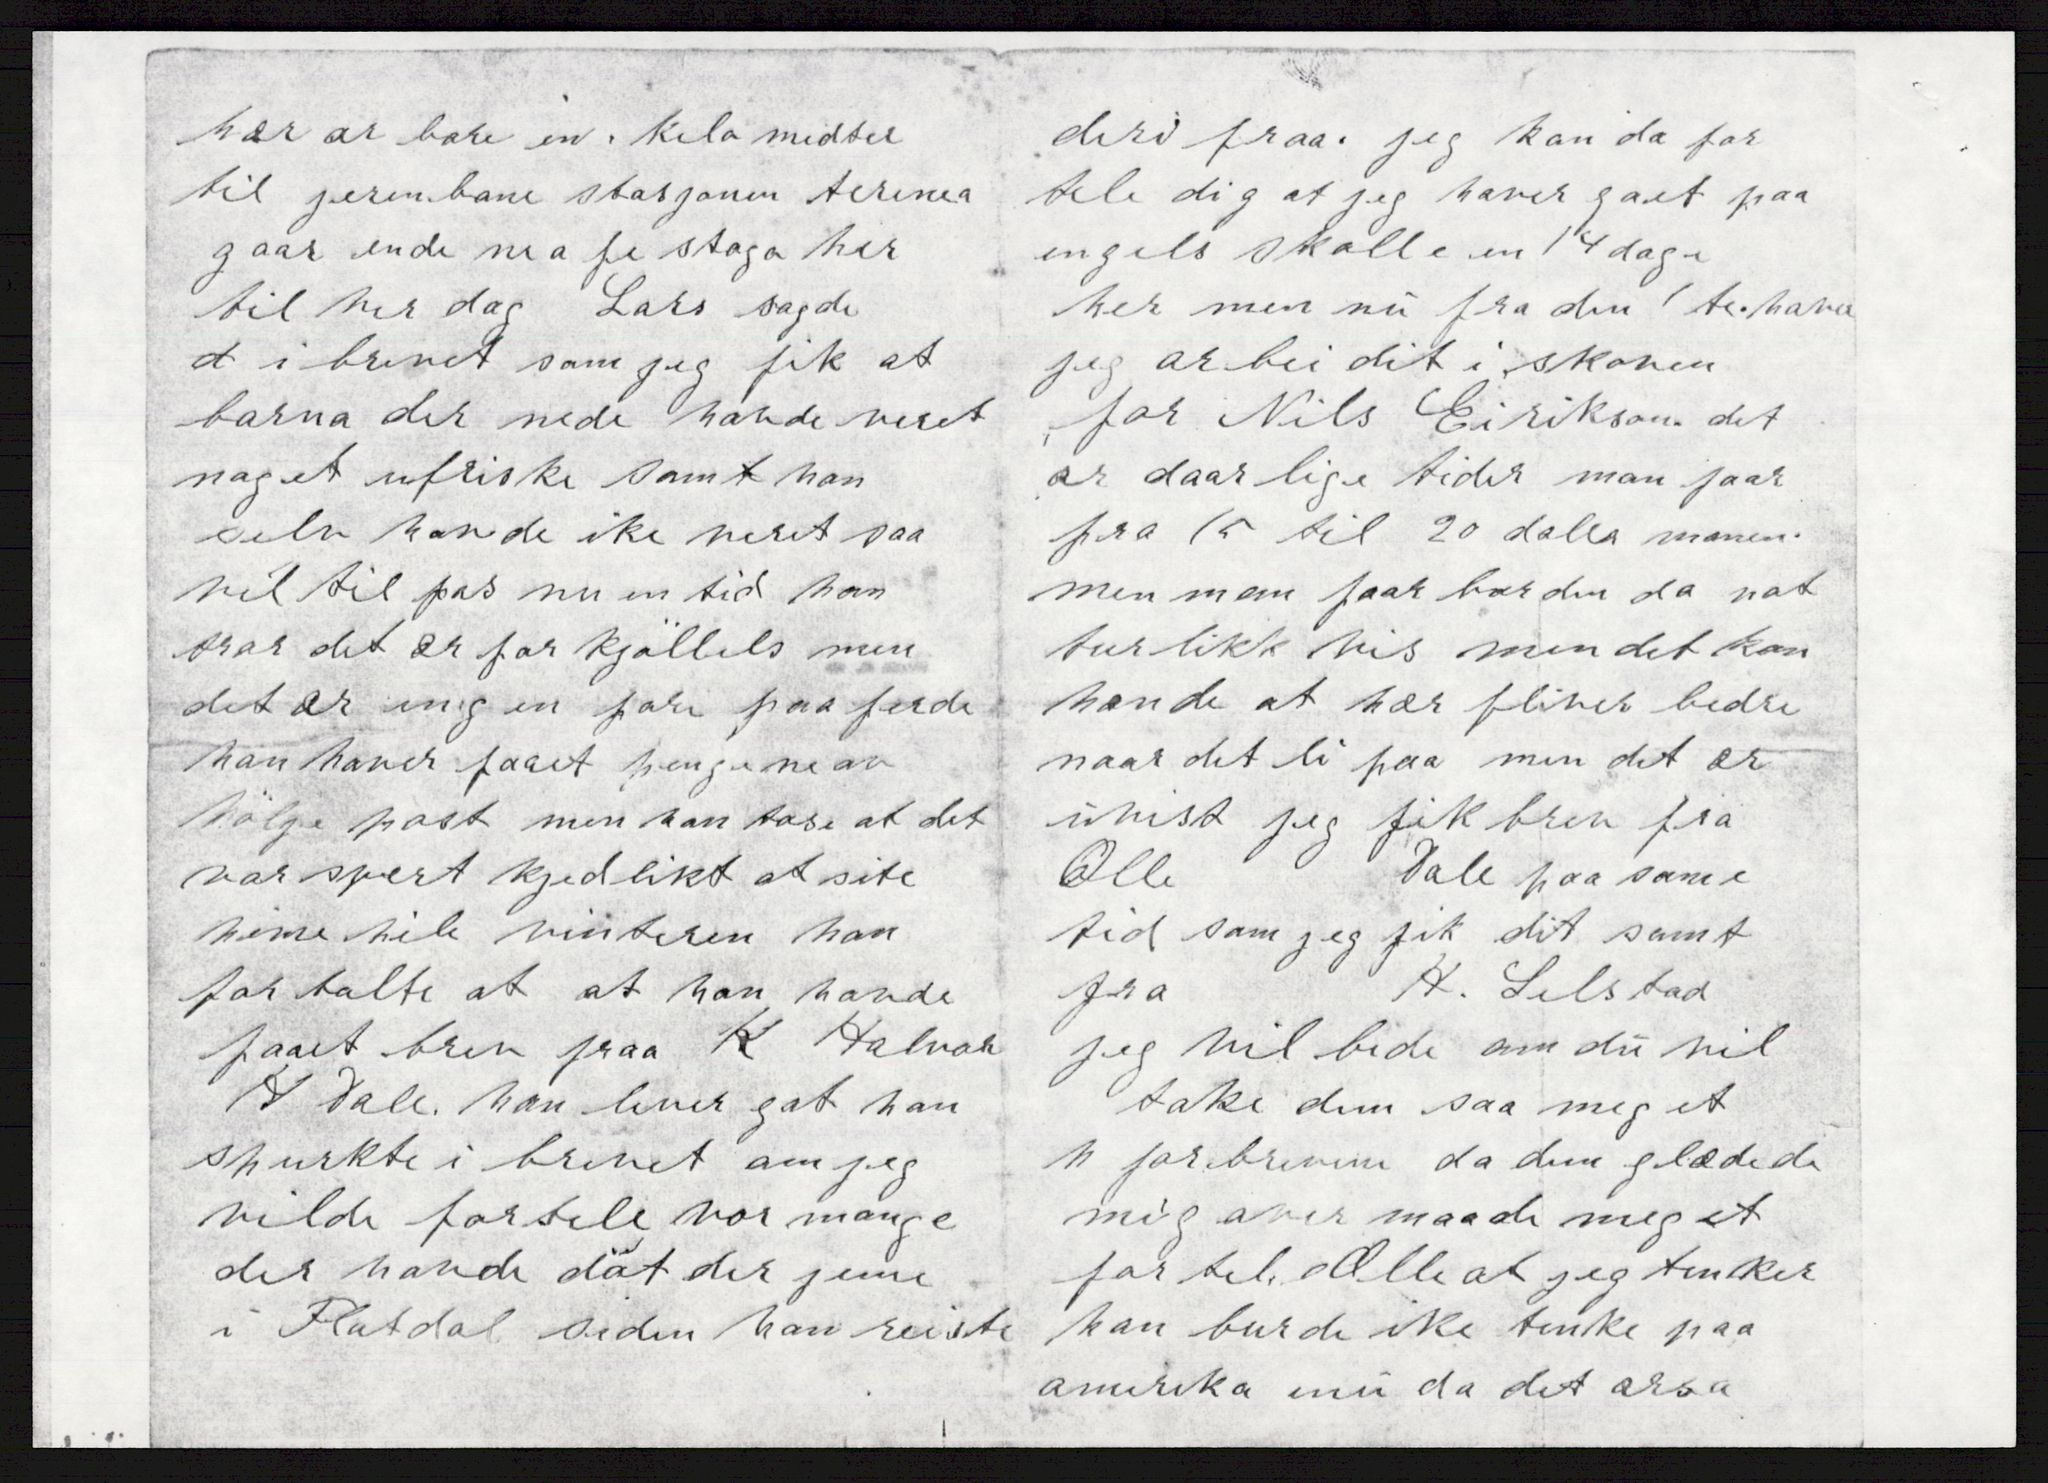 hær ær bare en. kelo medter
til jerenbane starsjonen terenea
gaar ende nea fe stoga her
til hver dag Lars sagde
d i brevet som jeg fik at
barna der nede havde veret
noget ufriske samt han
selv havde ike veret saa
vel til pas nu en tid han
trar det ær for kjöllels men
det ær ingen fare paa ferde
han haver faaet pengene av
hölje post men han tose at det
var svert kjedlikt at site
heime hele vinteren han
for talte at at han havde
faaet brev fraa K Halvor
H Dale. han lever gat han
spurkte i brevet am jeg
vilde fortele vor mange
der havde döt der jeme
i Flatdal siden han reiste
deri fraa. jeg kan da for
tele dig at jeg haver gaet paa
engels skolle en 14 dage
her men nü fra den 1 te. haver
jeg ar bei dit i skoven
for Nils Eirikson. det
ær daar lige tider man faar
fra 15 til 20 dalla manen.
men man faar borden da nat
tur likk vis men det kan
hænde at hær bliver bedre
naar det li paa men det ær
üvist jeg fik brev fra
Olle Dale paa same
tid som jeg fik dit samt
fra H. Selstad
jeg vil bede am dü vil
take dem saa meg et
h for brevene da dem glædede
mig aver maade meg et
for tel. Olle at jeg tenker
han burde ike tenke paa
amerika enü da det ær sa